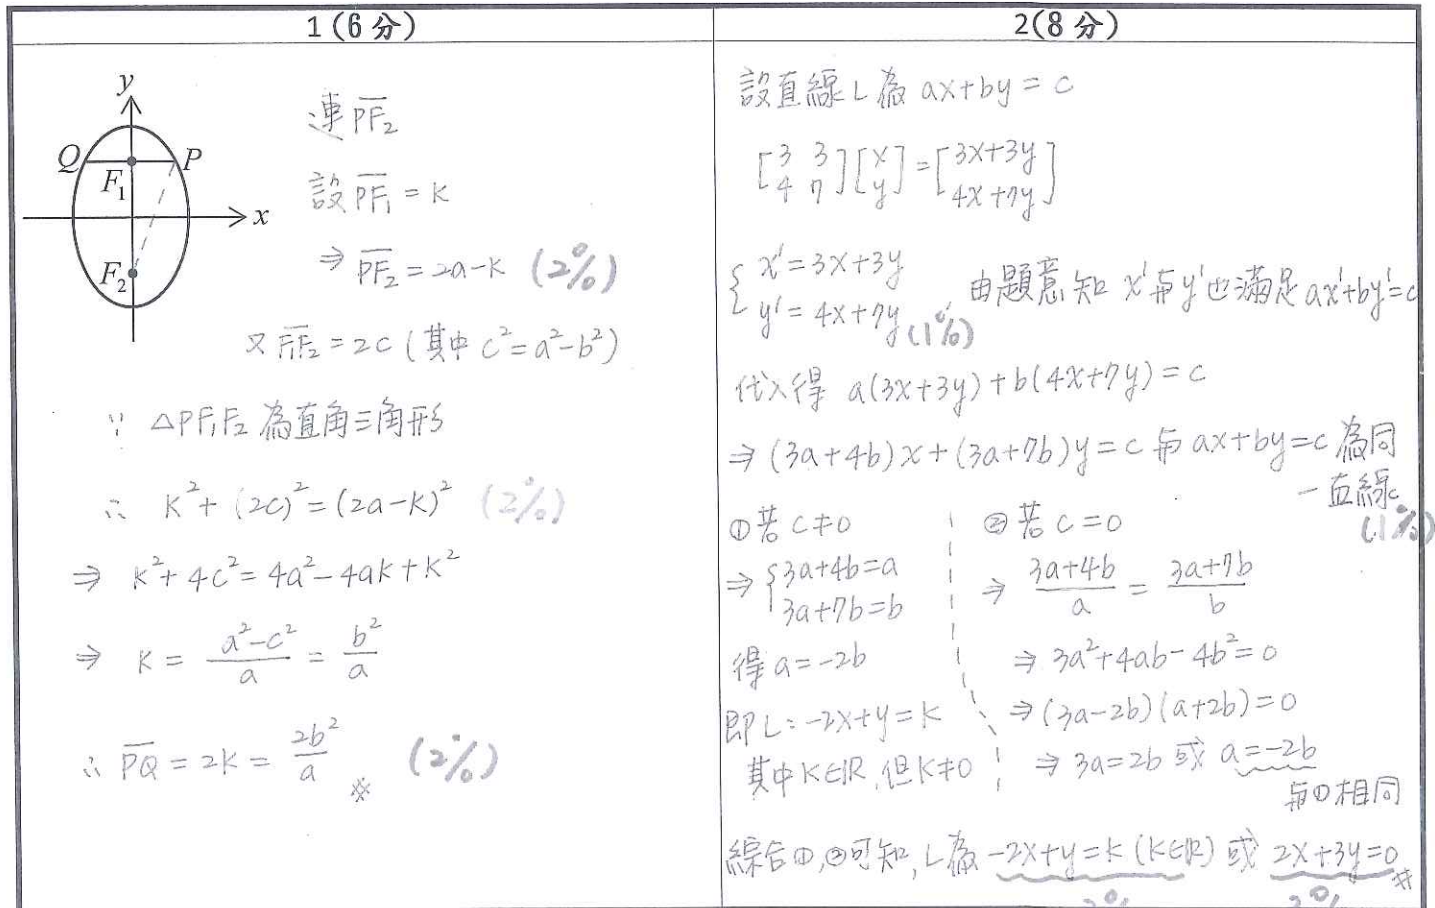 1(6分)
y
Q
P
F₁
x
F₂
連 PF₂
設 PF₁ = k
⇒ PF₂ = 2a-k (2%)
又 F₁F₂ = 2c (其中 c² = a²-b²)
∵ △PF₁F₂ 為直角三角形
∴ k² + (2c)² = (2a-k)² (2%)
⇒ k² + 4c² = 4a² - 4ak + k²
⇒ k = (a²-c²)/a = b²/a
∴ PQ = 2k = 2b²/a ※ (2%)
2(8分)
設直線 L 為 ax+by = c
[3 3; 4 7][x; y] = [3x+3y; 4x+7y]
{ x' = 3x+3y
y' = 4x+7y (1%), 由題意知 x' 與 y' 也滿足 ax'+by'=c
代入得 a(3x+3y)+b(4x+7y) = c
⇒ (3a+4b)x+(3a+7b)y = c 與 ax+by=c 為同
一直線。
(1%)
① 若 c≠0
⇒ { 3a+4b=a
3a+7b=b
得 a = -2b
即 L: -2x+y = k
其中 k∈R, 但 k≠0
② 若 c = 0
⇒ (3a+4b)/a = (3a+7b)/b
⇒ 3a²+4ab-4b² = 0
⇒ (3a-2b)(a+2b) = 0
⇒ 3a=2b 或 a=-2b
與①相同
綜合①,②可知, L 為 -2x+y=k (k∈R) 或 2x+3y=0 #
2% 2%